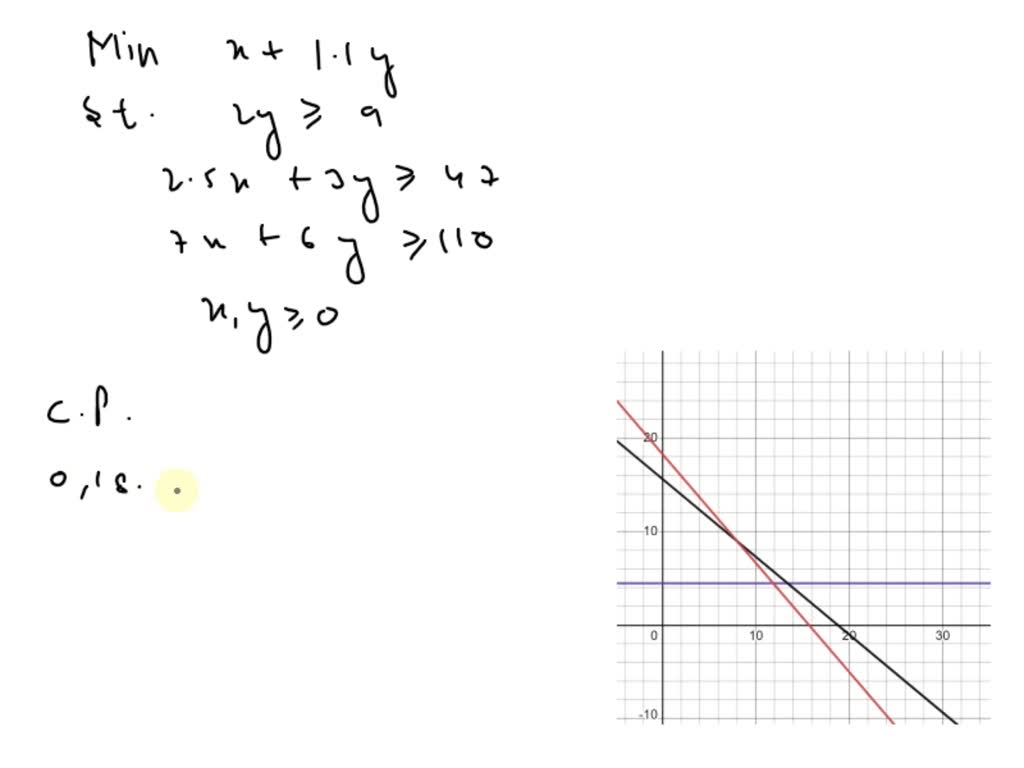 Min x + 1.1y
St. 2y ≥ 9
2.5x + 3y ≥ 47
7x + 6y ≥ 110
x, y ≥ 0
C.P.
0, 18.
20
10
0 10 20 30
-10